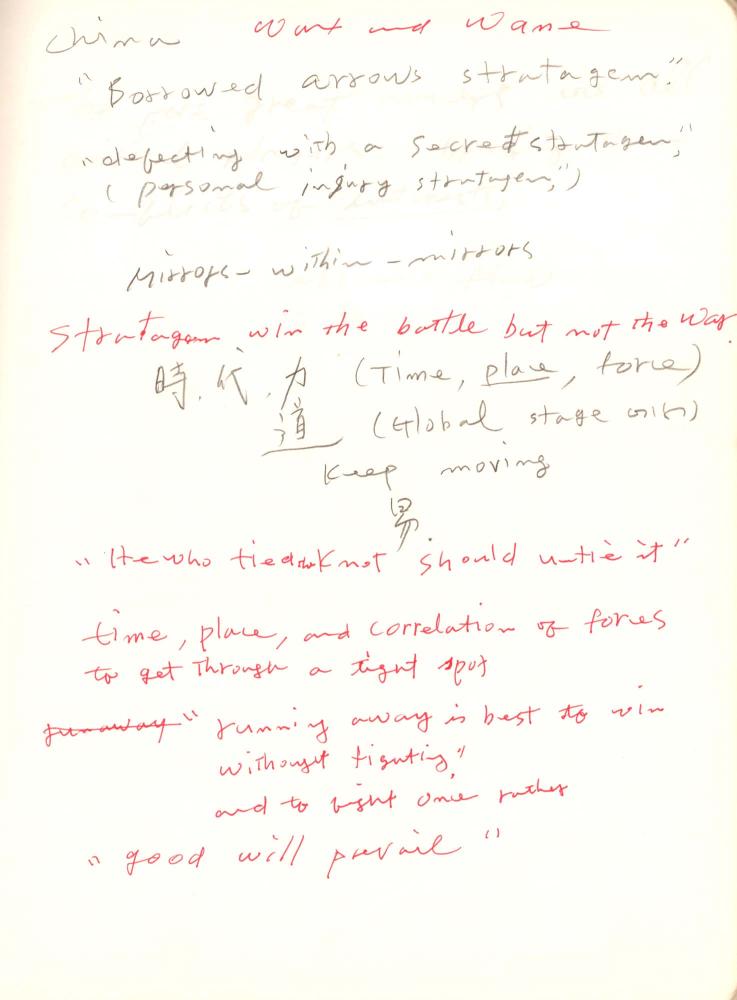 China Wax and Wane
"Borrowed arrows stratagem."
"defecting with a secret stratagem,"
(personal injury stratagem,")
Mirrors-within-mirrors
Stratagem win the battle but not the War.
時、代、力 (Time, place, force)
道 (Global stage
Keep moving
易.
"He who tied the Knot should untie it"
time, place, and correlation of forces
to get through a tight spot
runaway "running away is best to win
without fighting,"
and to fight once rather
"good will prevail"